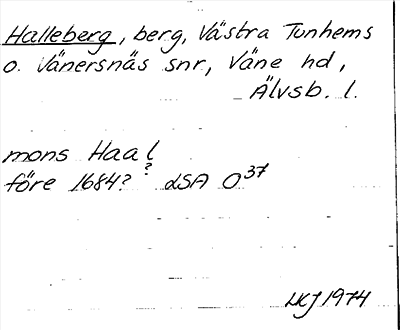 Halleberg, berg, Västra Tunhems
o. Vänersnäs snr, Väne hd,
Älvsb. l.
mons Haal
?
före 1684? LSA O37
LKJ 1974